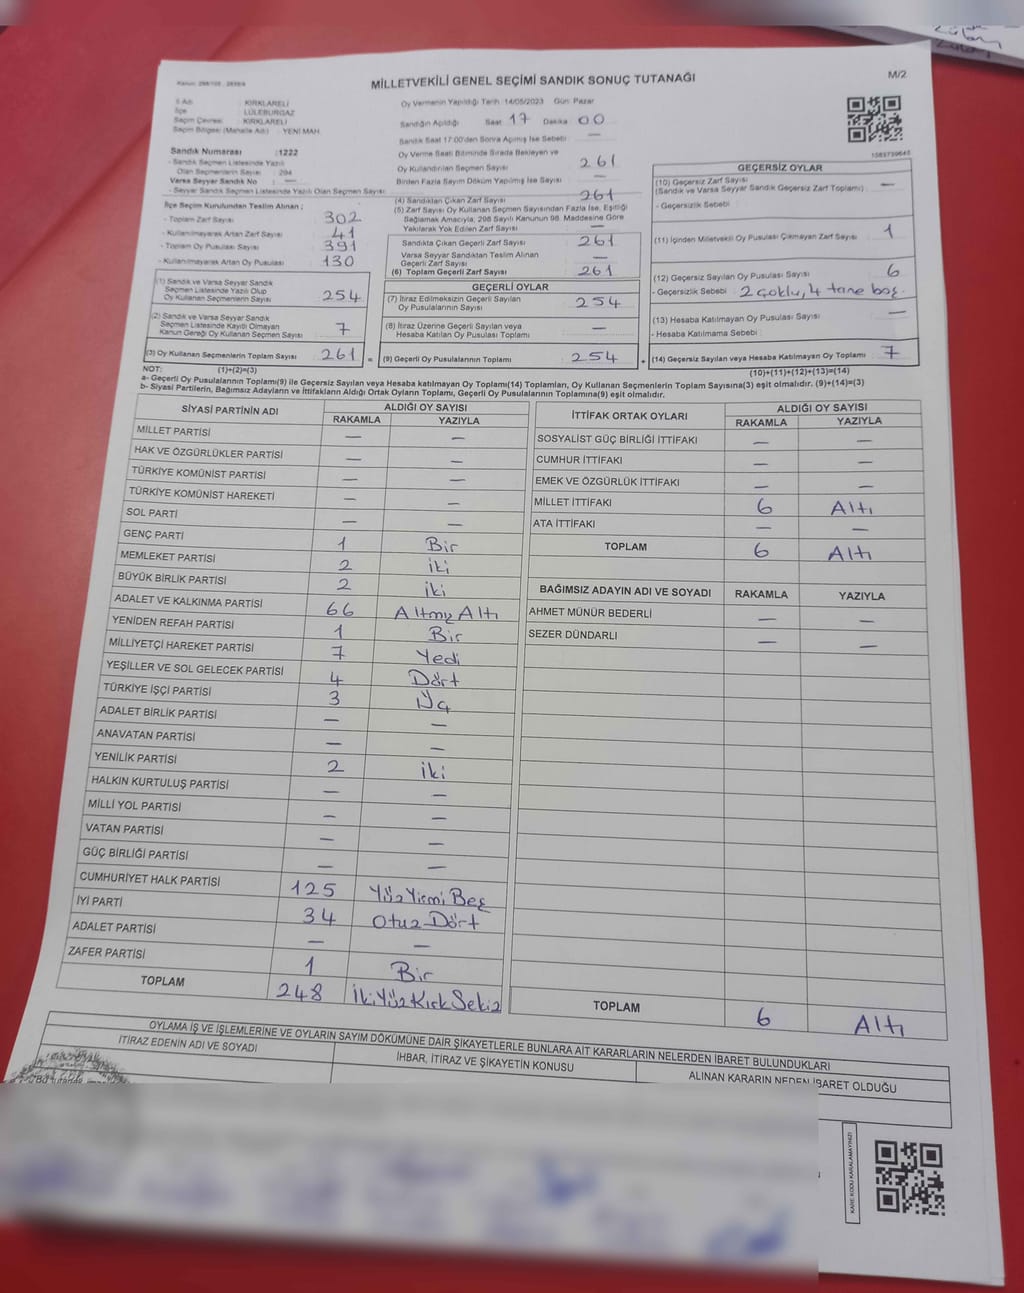 Zülam
Zülam
MİLLETVEKİLİ GENEL SEÇİMİ SANDIK SONUÇ TUTANAĞI
M/2
İl Adı : KIRKLARELİ
İlçe : LÜLEBURGAZ
Seçim Çevresi : KIRKLARELİ
Seçim Bölgesi (Mahalle Adı) : YENİ MAH.
Sandık Numarası :1222
- Sandık Seçmen Listesinde Yazılı
Olan Seçmenlerin Sayısı : 294
Varsa Seyyar Sandık No : —
- Seyyar Sandık Seçmen Listesinde Yazılı Olan Seçmen Sayısı:
İlçe Seçim Kurulundan Teslim Alınan ;
- Toplam Zarf Sayısı 302
- Kullanılmayarak Artan Zarf Sayısı 41
- Toplam Oy Pusulası Sayısı 391
- Kullanılmayarak Artan Oy Pusulası 130
(1) Sandık ve Varsa Seyyar Sandık
Seçmen Listesinde Yazılı Olup
Oy Kullanan Seçmenlerin Sayısı 254
(2) Sandık ve Varsa Seyyar Sandık
Seçmen Listesinde Kayıtlı Olmayan
Kanun Gereği Oy Kullanan Seçmen Sayısı 7
(3) Oy Kullanan Seçmenlerin Toplam Sayısı 261 =
Oy Vermenin Yapıldığı Tarih: 14/05/2023 Gün: Pazar
Sandığın Açıldığı Saat 17 Dakika 00
Sandık Saat 17:00'den Sonra Açılmış İse Sebebi: —
Oy Verme Saati Bitiminde Sırada Bekleyen ve
Oy Kullandırılan Seçmen Sayısı 261
Birden Fazla Sayım Döküm Yapılmış İse Sayısı —
(4) Sandıktan Çıkan Zarf Sayısı 261
(5) Zarf Sayısı Oy Kullanan Seçmen Sayısından Fazla İse, Eşitliği
Sağlamak Amacıyla; 298 Sayılı Kanunun 98. Maddesine Göre
Yakılarak Yok Edilen Zarf Sayısı —
Sandıkta Çıkan Geçerli Zarf Sayısı 261
Varsa Seyyar Sandıktan Teslim Alınan
Geçerli Zarf Sayısı —
(6) Toplam Geçerli Zarf Sayısı 261
GEÇERLİ OYLAR
(7) İtiraz Edilmeksizin Geçerli Sayılan
Oy Pusulalarının Sayısı 254
(8) İtiraz Üzerine Geçerli Sayılan veya
Hesaba Katılan Oy Pusulası Sayısı —
(9) Geçerli Oy Pusulalarının Toplamı 254 +
1583739645
GEÇERSİZ OYLAR
(10) Geçersiz Zarf Sayısı —
(Sandık ve Varsa Seyyar Sandık Geçersiz Zarf Toplamı)
- Geçersizlik Sebebi :
(11) İçinden Milletvekili Oy Pusulası Çıkmayan Zarf Sayısı 1
(12) Geçersiz Sayılan Oy Pusulası Sayısı 6
- Geçersizlik Sebebi : 2 çoklu, 4 tane boş.
(13) Hesaba Katılmayan Oy Pusulası Sayısı —
- Hesaba Katılmama Sebebi :
(14) Geçersiz Sayılan veya Hesaba Katılmayan Oy Toplamı 7
NOT: (1)+(2)=(3) (10)+(11)+(12)+(13)=(14)
a- Geçerli Oy Pusulalarının Toplamı(9) ile Geçersiz Sayılan veya Hesaba Katılmayan Oy Toplamı(14) Toplamları, Oy Kullanan Seçmenlerin Toplam Sayısına(3) eşit olmalıdır. (9)+(14)=(3)
b- Siyasi Partilerin, Bağımsız Adayların ve İttifakların Aldığı Ortak Oyların Toplamı, Geçerli Oy Pusulalarının Toplamına(9) eşit olmalıdır.
SİYASİ PARTİNİN ADI ALDIĞI OY SAYISI
RAKAMLA YAZIYLA
MİLLET PARTİSİ — —
HAK VE ÖZGÜRLÜKLER PARTİSİ — —
TÜRKİYE KOMÜNİST PARTİSİ — —
TÜRKİYE KOMÜNİST HAREKETİ — —
SOL PARTİ — —
GENÇ PARTİ 1 Bir
MEMLEKET PARTİSİ 2 iki
BÜYÜK BİRLİK PARTİSİ 2 iki
ADALET VE KALKINMA PARTİSİ 66 Altmış Altı
YENİDEN REFAH PARTİSİ 1 Bir
MİLLİYETÇİ HAREKET PARTİSİ 7 Yedi
YEŞİLLER VE SOL GELECEK PARTİSİ 4 Dört
TÜRKİYE İŞÇİ PARTİSİ 3 Üç
ADALET BİRLİK PARTİSİ — —
ANAVATAN PARTİSİ — —
YENİLİK PARTİSİ 2 iki
HALKIN KURTULUŞ PARTİSİ — —
MİLLİ YOL PARTİSİ — —
VATAN PARTİSİ — —
GÜÇ BİRLİĞİ PARTİSİ — —
CUMHURİYET HALK PARTİSİ 125 Yüz Yirmi Beş
İYİ PARTİ 34 Otuz Dört
ADALET PARTİSİ — —
ZAFER PARTİSİ 1 Bir
TOPLAM 248 İki Yüz Kırk Sekiz
İTTİFAK ORTAK OYLARI ALDIĞI OY SAYISI
RAKAMLA YAZIYLA
SOSYALİST GÜÇ BİRLİĞİ İTTİFAKI — —
CUMHUR İTTİFAKI — —
EMEK VE ÖZGÜRLÜK İTTİFAKI — —
MİLLET İTTİFAKI 6 Altı
ATA İTTİFAKI — —
TOPLAM 6 Altı
BAĞIMSIZ ADAYIN ADI VE SOYADI RAKAMLA YAZIYLA
AHMET MÜNÜR BEDERLİ — —
SEZER DÜNDARLI — —
TOPLAM 6 Altı
OYLAMA İŞ VE İŞLEMLERİNE VE OYLARIN SAYIM DÖKÜMÜNE DAİR ŞİKAYETLERLE BUNLARA AİT KARARLARIN NELERDEN İBARET BULUNDUKLARI
İTİRAZ EDENİN ADI VE SOYADI İHBAR, İTİRAZ VE ŞİKAYETİN KONUSU ALINAN KARARIN NEDEN İBARET OLDUĞU
KARE KODU KARALAMAYINIZ!